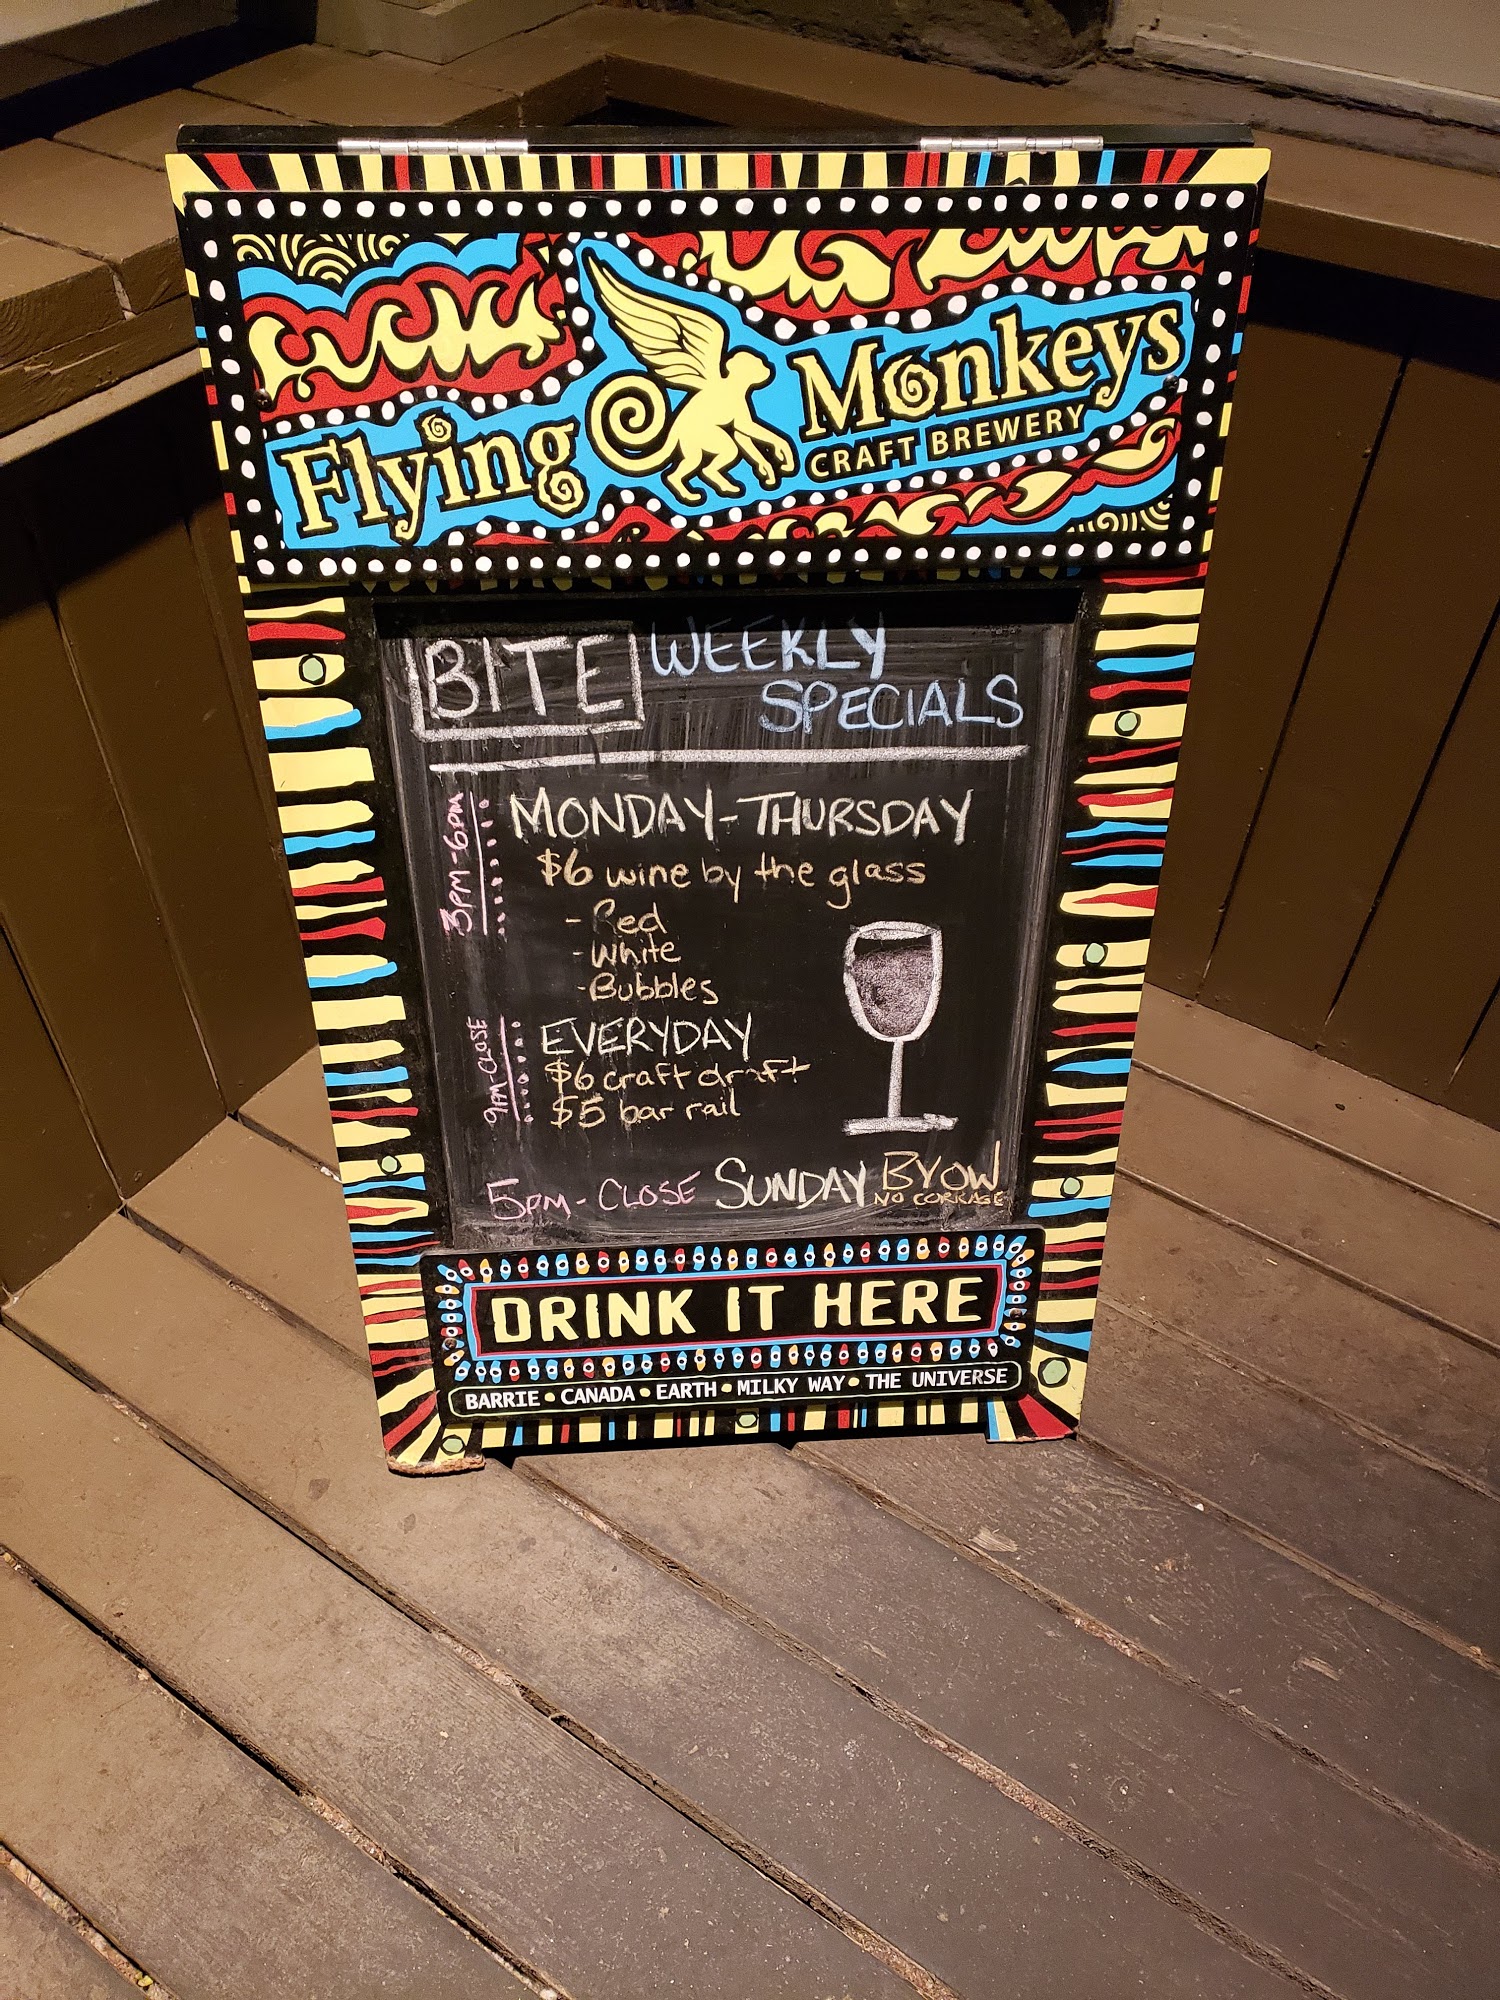 Flying Monkeys
CRAFT BREWERY
BITE WEEKLY
SPECIALS
3PM-6PM
MONDAY-THURSDAY
$6 wine by the glass
- Red
- White
- Bubbles
9PM-CLOSE
EVERYDAY
$6 craft draft
$5 bar rail
5PM - CLOSE SUNDAY BYOW
NO CORKAGE
DRINK IT HERE
BARRIE • CANADA • EARTH • MILKY WAY • THE UNIVERSE